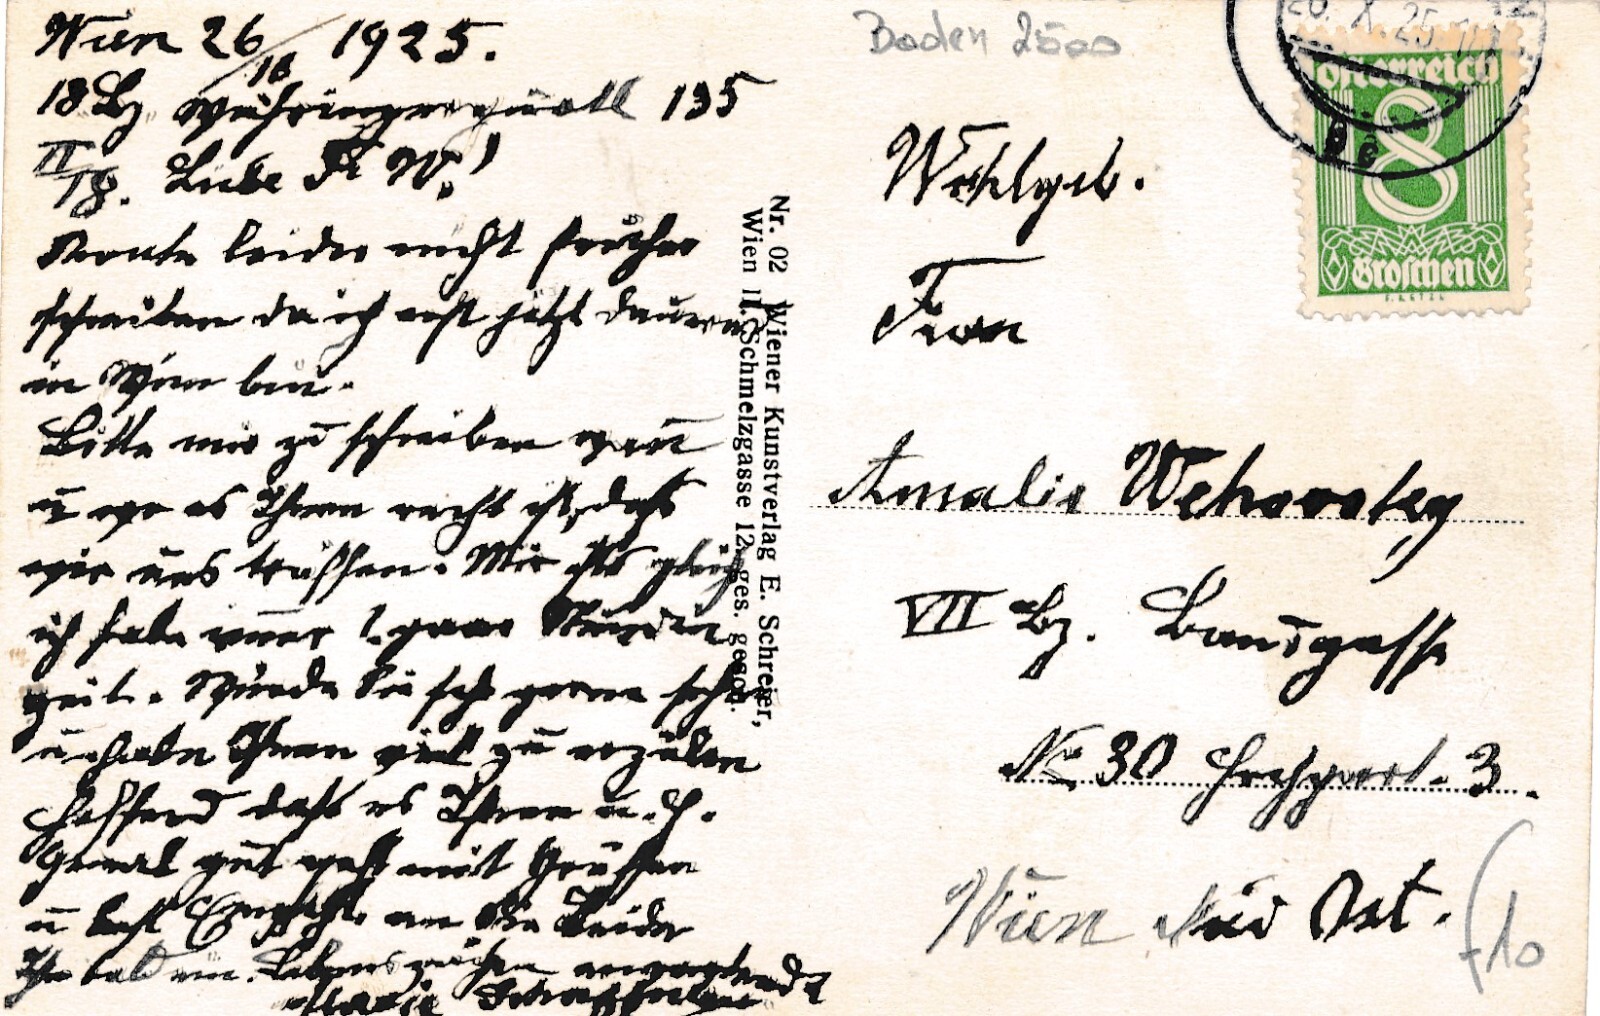 Wien 26/10 1925.
18 Bz Währingergürtel 135
II/18. Liebe Fr W.!
Konnte leider nicht früher
schreiben da ich erst jetzt dauernd
in Wien bin.
Bitte mir zu schreiben wan
u wo es Ihnen recht ist, daß
wir uns treffen. Mir ists gleich
ich habe immer 1 paar Stunden
Zeit. Würde Sie sehr gerne sehen
u habe Ihnen viel zu erzälen
Hoffend daß es Ihnen u. H.
Gemal gut geht mit Grüßen
u best Empfehl. an Sie Beide
Ihr bald ein Lebenszeichen erwartende
Marie
Nr. 02 Wiener Kunstverlag E. Schreier,
Wien II. Schmelzgasse 12. ges. gesch.
Boden 2500
26. X. 25
Österreich
8
Groschen
Wohlgeb.
Frau
Amalie
VII Bz. Bandgasse
No 30 Hochpart. 3.
Wien
f10